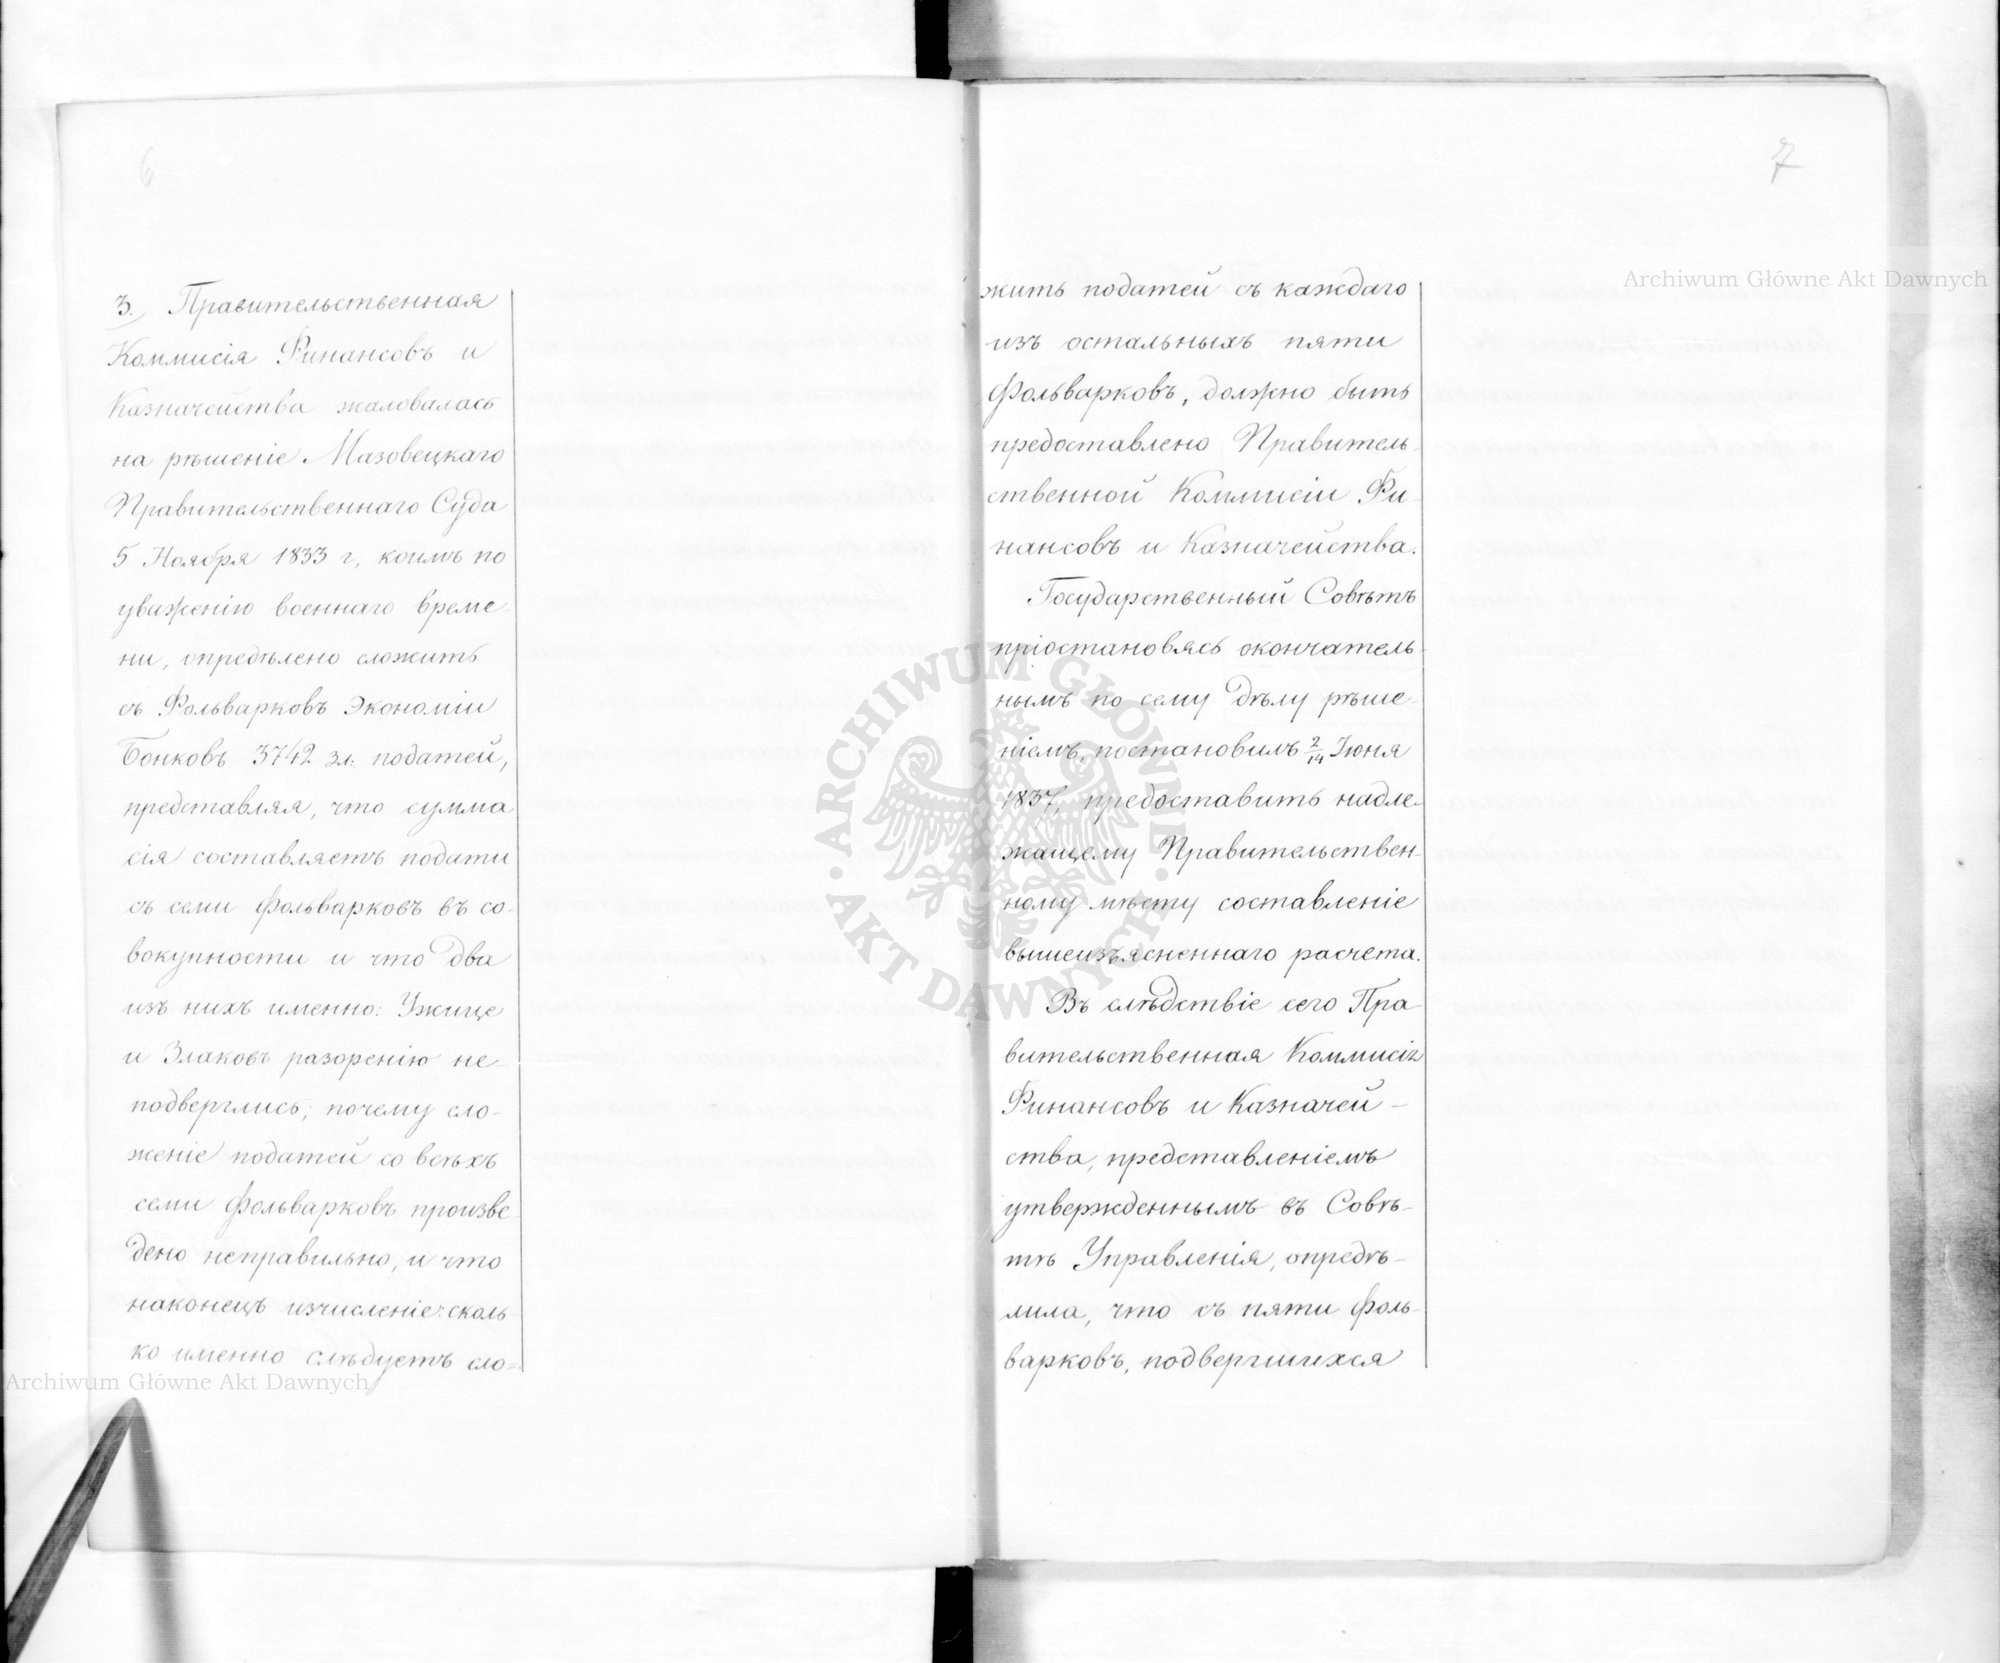 6
3. Правительственная
Коммисія Финансовъ и
Казначейства жаловалась
на рѣшеніе Мазовецкаго
Правительственнаго Суда
5 Ноября 1833 г, коимъ по
уваженію военнаго време-
ни, опредѣлено сложить
съ Фольварковъ Экономіи
Бонковъ 3742 зл: податей,
представляя, что сумма
сія составляетъ подати
съ семи фольварковъ въ со-
вокупности и что два
изъ нихъ именно: Ужице
и Злаковъ разоренію не-
подверглись; почему сло-
женіе податей со всѣхъ
семи фольварковъ произве-
дено неправильно, и что
наконецъ изчисленіе: сколь-
ко именно слѣдуетъ сло-
7
жить податей съ каждаго
изъ остальныхъ пяти
Фольварковъ, должно быть
предоставлено Правитель-
ственной Коммисіи Фи-
нансовъ и Казначейства.
Государственный Совѣтъ
пріостановясь окончатель-
нымъ по сему дѣлу рѣше-
ніемъ, постановилъ 2/14 Іюня
1837, предоставить надле-
жащему Правительствен-
ному мѣсту составленіе
вышеизъясненнаго расчета.
Въ слѣдствіе сего Пра-
вительственная Коммисія
Финансовъ и Казначей-
ства, представленіемъ
утвержденнымъ въ Совѣ-
тѣ Управленія, опредѣ-
лила, что съ пяти фоль-
варковъ, подвергшихся
Archiwum Główne Akt Dawnych
Archiwum Główne Akt Dawnych
ARCHIWUM GŁÓWNE
AKT DAWNYCH